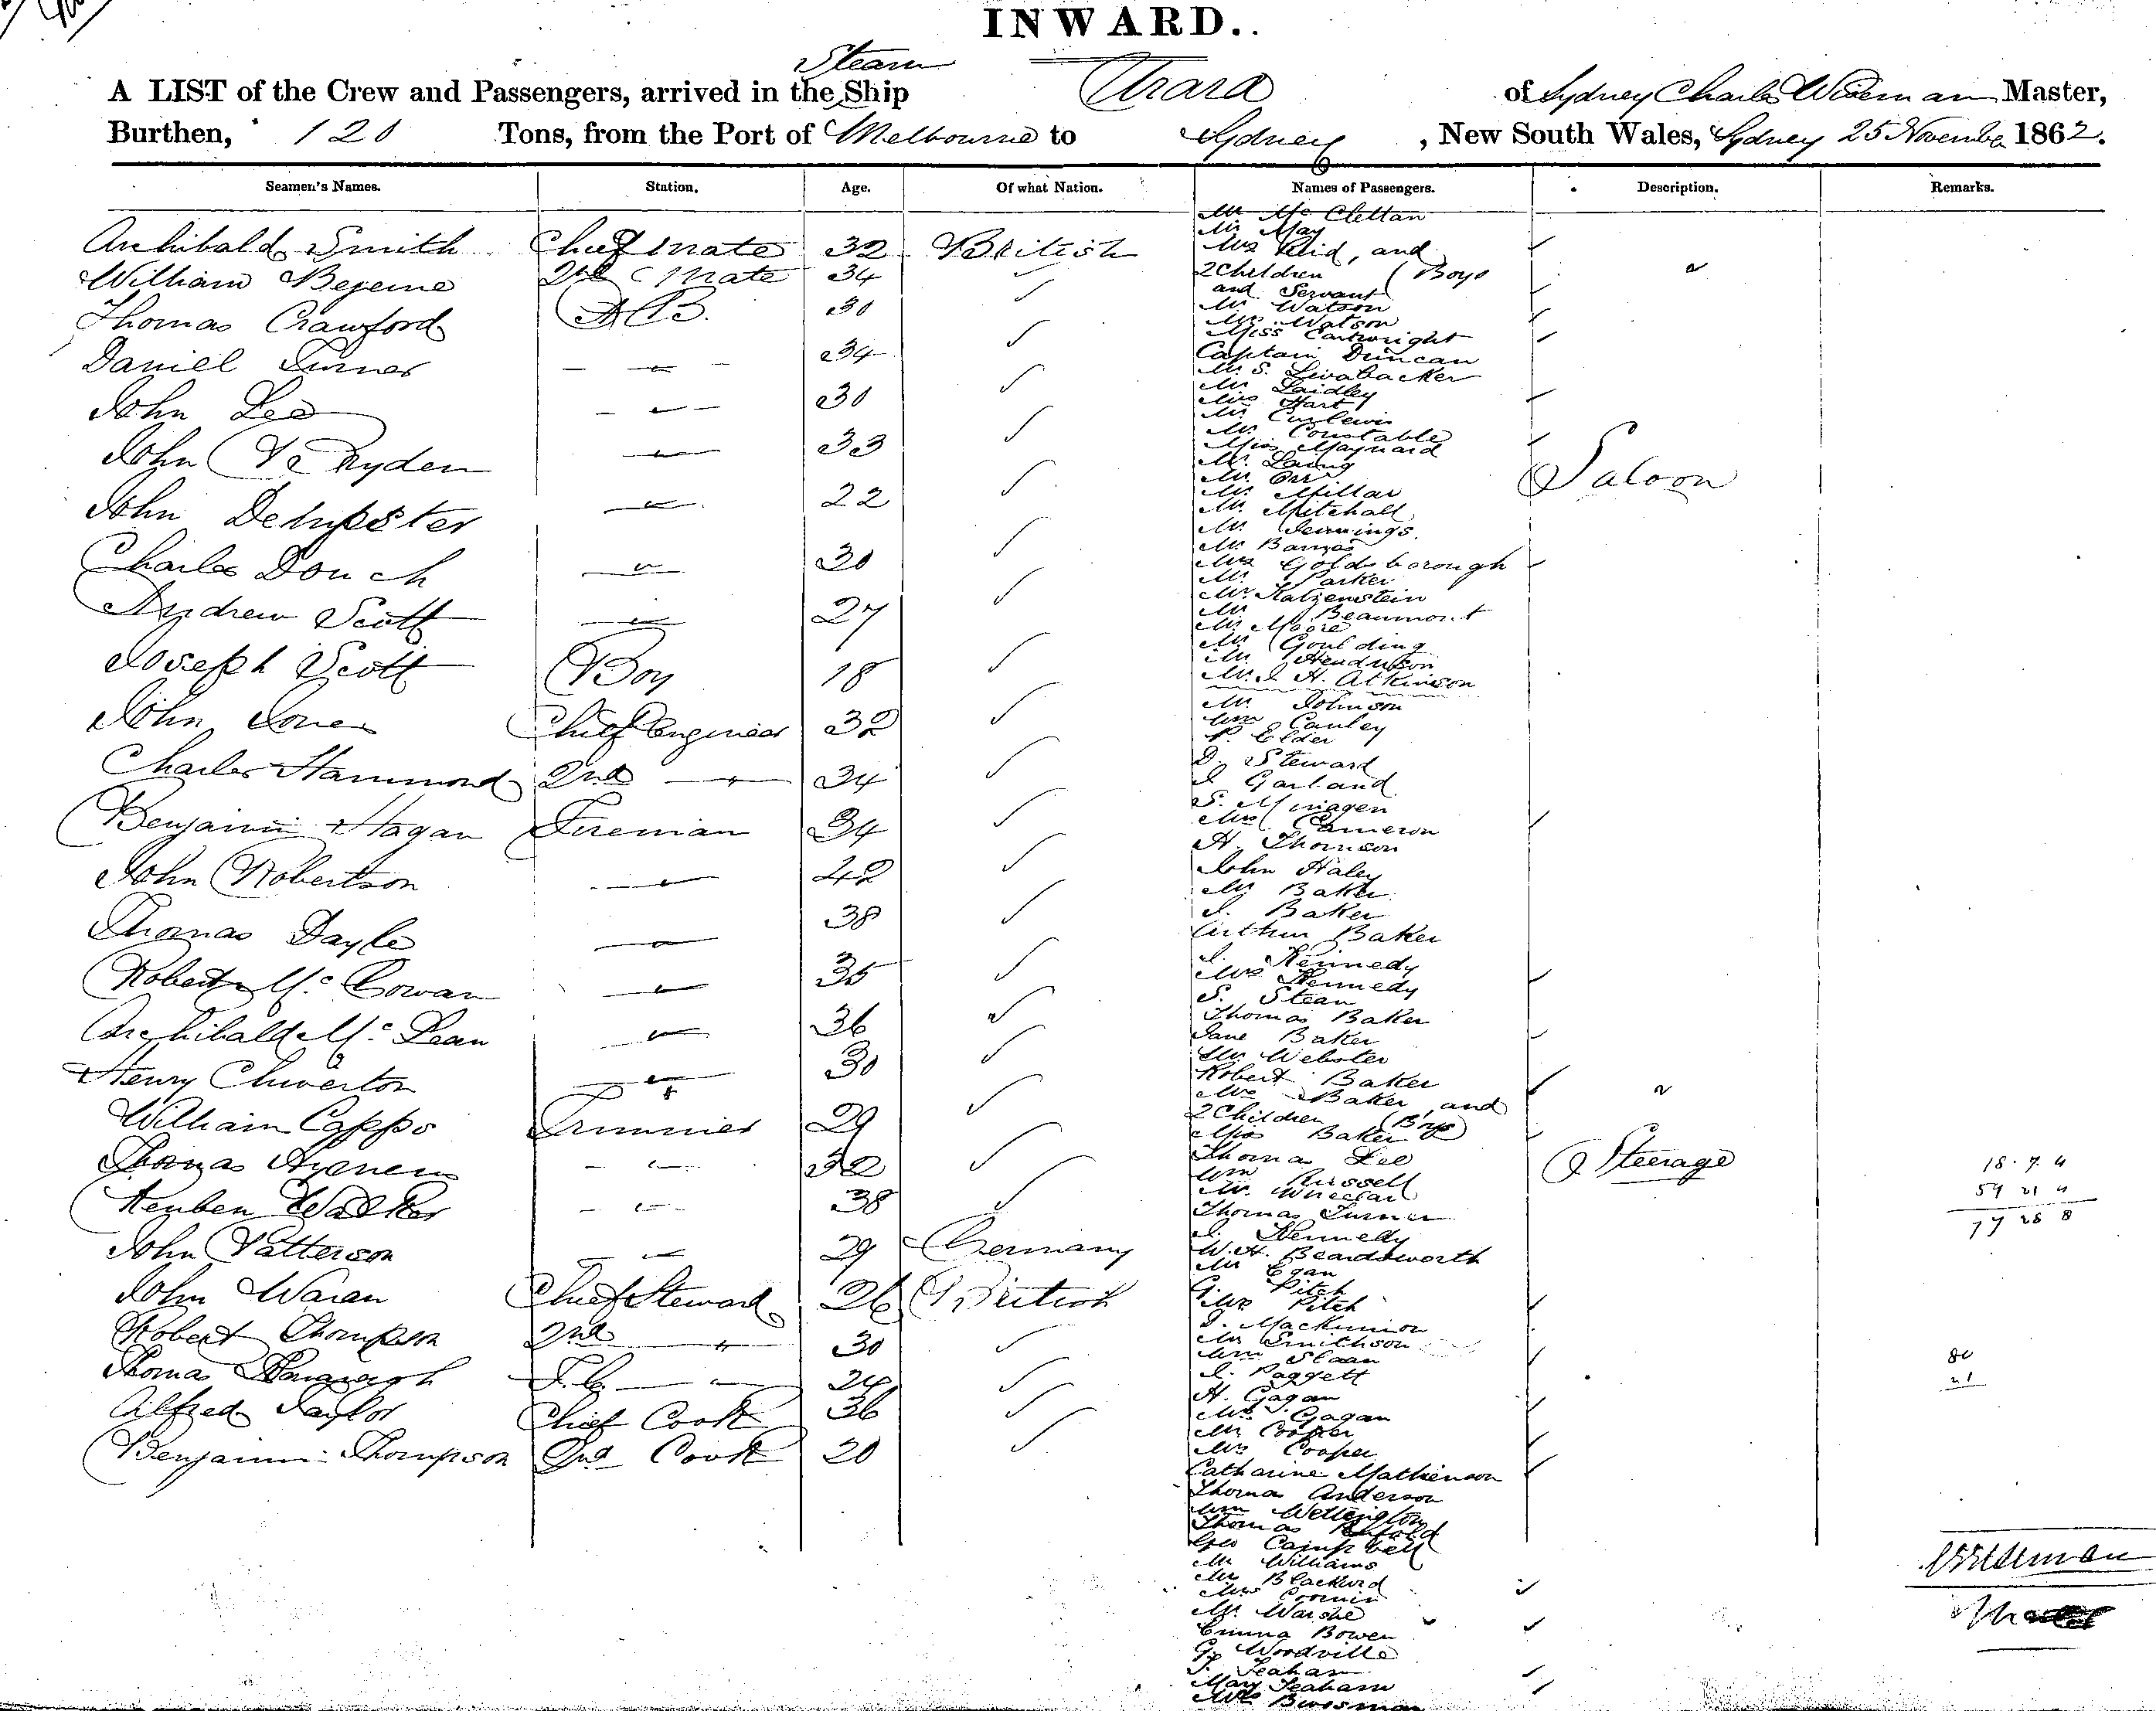 INWARD..
Steam
A LIST of the Crew and Passengers, arrived in the Ship of Sydney Charles Wiseman Master,
Burthen, 120 Tons, from the Port of Melbourne to Sydney, New South Wales, Sydney 25 November 1862.
Seamen's Names. Station. Age. Of what Nation. Names of Passengers. Description. Remarks.
Archibald Smith Chief Mate 32 British
William 2nd Mate 34
Thomas Crawford A B. 30
Daniel Turner 34
John Lee 30
John 33
John Dempster 22
Charles Douch 30
Andrew Scott 27
Joseph Scott Boy 18
John Jones Chief Engineer 32
Charles Hammond 2nd 34
Benjamin Hagan Fireman 34
John Robertson 42
Thomas Dayle 38
Robert Mc Cowan 35
Archibald Mc Lean 36
Henry Chiverton 30
William Capps Trimmer 29
Thomas 32
Reuben Walker 38
John Patterson 29 Germany
John Waran Chief Steward 26 British
Robert Thompson 2nd 30
Thomas Kavanagh 24
Alfred Taylor Chief Cook 36
Benjamin Thompson 2nd Cook 20
Mr Mc Clettan
Mr May
Mrs Reid, and
2 Children (Boys
and Servant
Mr. Watson
Mrs Watson
Miss Cartwright
Captain Duncan
Mr S. Levabacker
Mr Laidley
Mrs Hart
Mr Curlewis
Mr. Constable
Miss Maynard
Mr. Laing
Mr. Orr
Mr. Millar
Mr. Mitchall
Mr. Jennings.
Mr Barnes
Mrs Goldsborough
Mr. Parker
Mr. Katzenstein
Mr Beaumont
Mr Moore
Mr Goulding
Mr. Henderson
Mr. J H. Atkinson
Saloon
Mr. Johnson
Wm Cauley
P. Elder
D. Steward
J Garland
S. Minagen
Mrs Cameron
H. Thomson
John Haley
Mr Baker
J. Baker
Arthur Baker
J. Kennedy
Mrs Kennedy
S. Stean
Thomas Baker
Jane Baker
Mr Webster
Robert Baker
Mrs Baker, and
2 Children (Boys)
Miss Baker
Thomas Lee
Wm Russell
Mr. Wheelar
Thomas Turner
J. Kennedy
W.H. Beardsworth
Mr Egan
G. Pitch
Mrs Pitch
J. Mackinnon
Mr Smithson
Wm Sloan
J. Paggett
H. Gagan
Mrs Gagan
Mr Cooper
Mrs Cooper
Catharine Mathienson
Thomas Anderson
Wm Wellington
Thomas Enfold
Geo Campbell
Mr Williams
Mr
Mrs Cronin
Mr. Warshe
Emma Bowen
G. Woodville
T. Seaham
Mary Seaham
Mrs
Steerage
18. 7. 4
59 21 4
77 28 8
80
21
CWiseman
Master